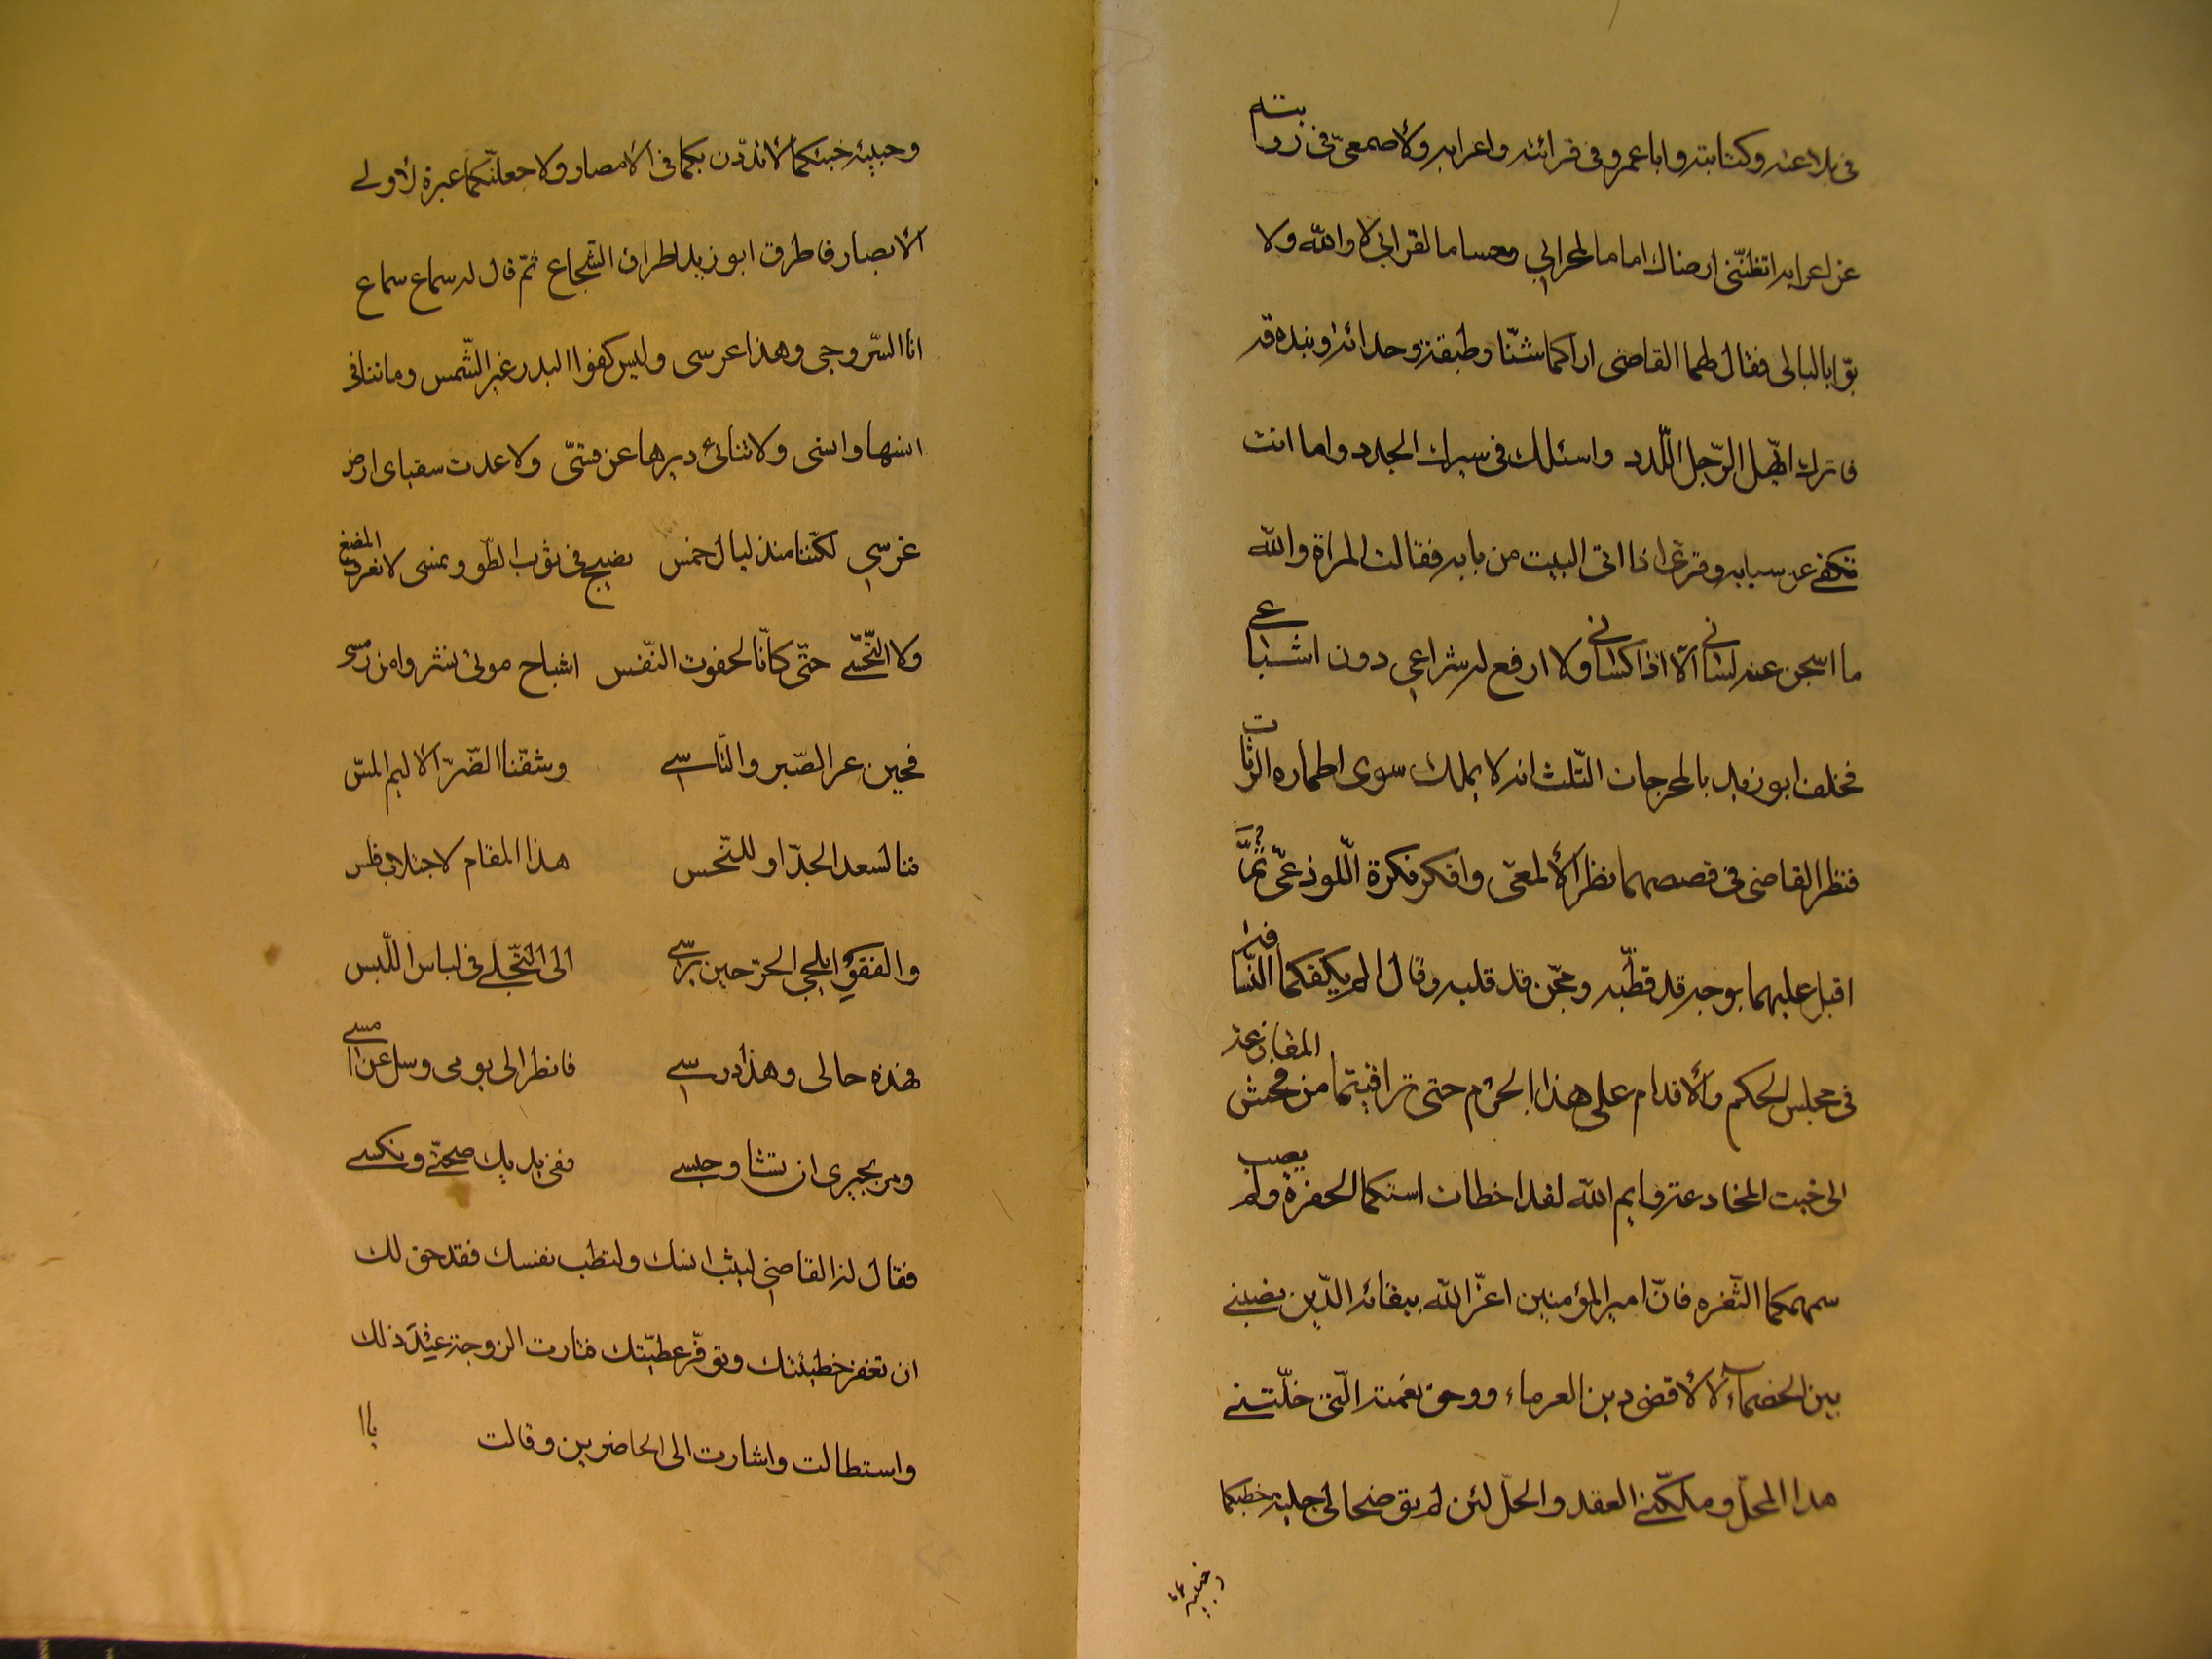 فى بلاغته وكتابته وابا عمرو فى قرائته واعرابه والاصمعىّ فى روايته
عن اعرابه اتظنّنى ارضاك اماما لمحرابى وحساما لقرابى لا والله ولا
بوّابا لبابى فقال لهما القاضى اراكما شنّا وطبقة وحدائة وبندقة
فاترك ايّها الرّجل اللّدد واسئلك فى سيرك الجدد واما انت
فكفى عن سبابه وقرّى اذا اتى البيت من بابه فقالت المراة والله
ما اسجن عنه لسانى الّا اذا كسانى ولا ارفع له شراعى دون اشباعى
فحلف ابو زيد بالمحرجات الثّلث انه لا يملك سوى اطماره الرثاث
فنظر القاضى فى قصصهما نظر الالمعىّ وافكر فكرة اللّوذعىّ ثمّ
اقبل عليهما بوجه قد قطّبه ومجنّ قد قلبه وقال الم يكفكما التّسافه
فى مجلس الحكم والاقدام على هذا الجرم حتى تراقيتما من فحش المقاذعة
الى خبث المخادعة وايم الله لقد اخطات استكما الحفرة ولم يصب
سهمكما الثّغره فانّ امير المؤمنين اعزّ الله ببقائه الدّين نصبنى
بين الخصماء لا لاقضى دين الغرماء ووحق نعمته الّتى حلّتنى
هذا المحلّ وملكّتنى العقد والحلّ لئن لم توضحا لى جلية خطبكما
وخبيئة
وخبيئة خبئكما لانددّن بكما فى الامصار ولاجعلنّكما عبرة لاولى
الابصار فاطرق ابو زيد اطراق الشّجاع ثمّ قال له سماع سماع
انا السّروجى وهذا عرسى وليس كفوا البدر غير الشّمس وما تنافى
انسها وانسى ولا تنائى ديرها عن قسّى ولا عدت سقياى ارض
غرسى لكنّنا منذ ليال خمس نصبح فى ثوب الطّوى ونمسى لا نعرف المضغ
ولا التّحسّى حتّى كانّا لخفوت النّفس اشباح موتى نشروا من رمس
فحين عز الصّبر والتّاسى وشقّنا الضّرّ الاليم المسّ
قمنا لسعد الجدّ او للنّحس هذا المقام لاجتلاب فلس
والفقر يلجى الحرّ حين يرسى الى التّجلّى فى لباس اللّبس
فهذه حالى وهذا درسى فانظر الى يومى وسل عن امسى
ومر بجبرى ان تشا وحبسى ففى يديك صحّتى ونكسى
فقال له القاضى ليثب انسك ولتطب نفسك فقد حق لك
ان تغفر خطيئتك وتوفّر عطيّتك فثارت الزوجة عند ذلك
واستطالت واشارت الى الحاضرين وقالت
يا ا